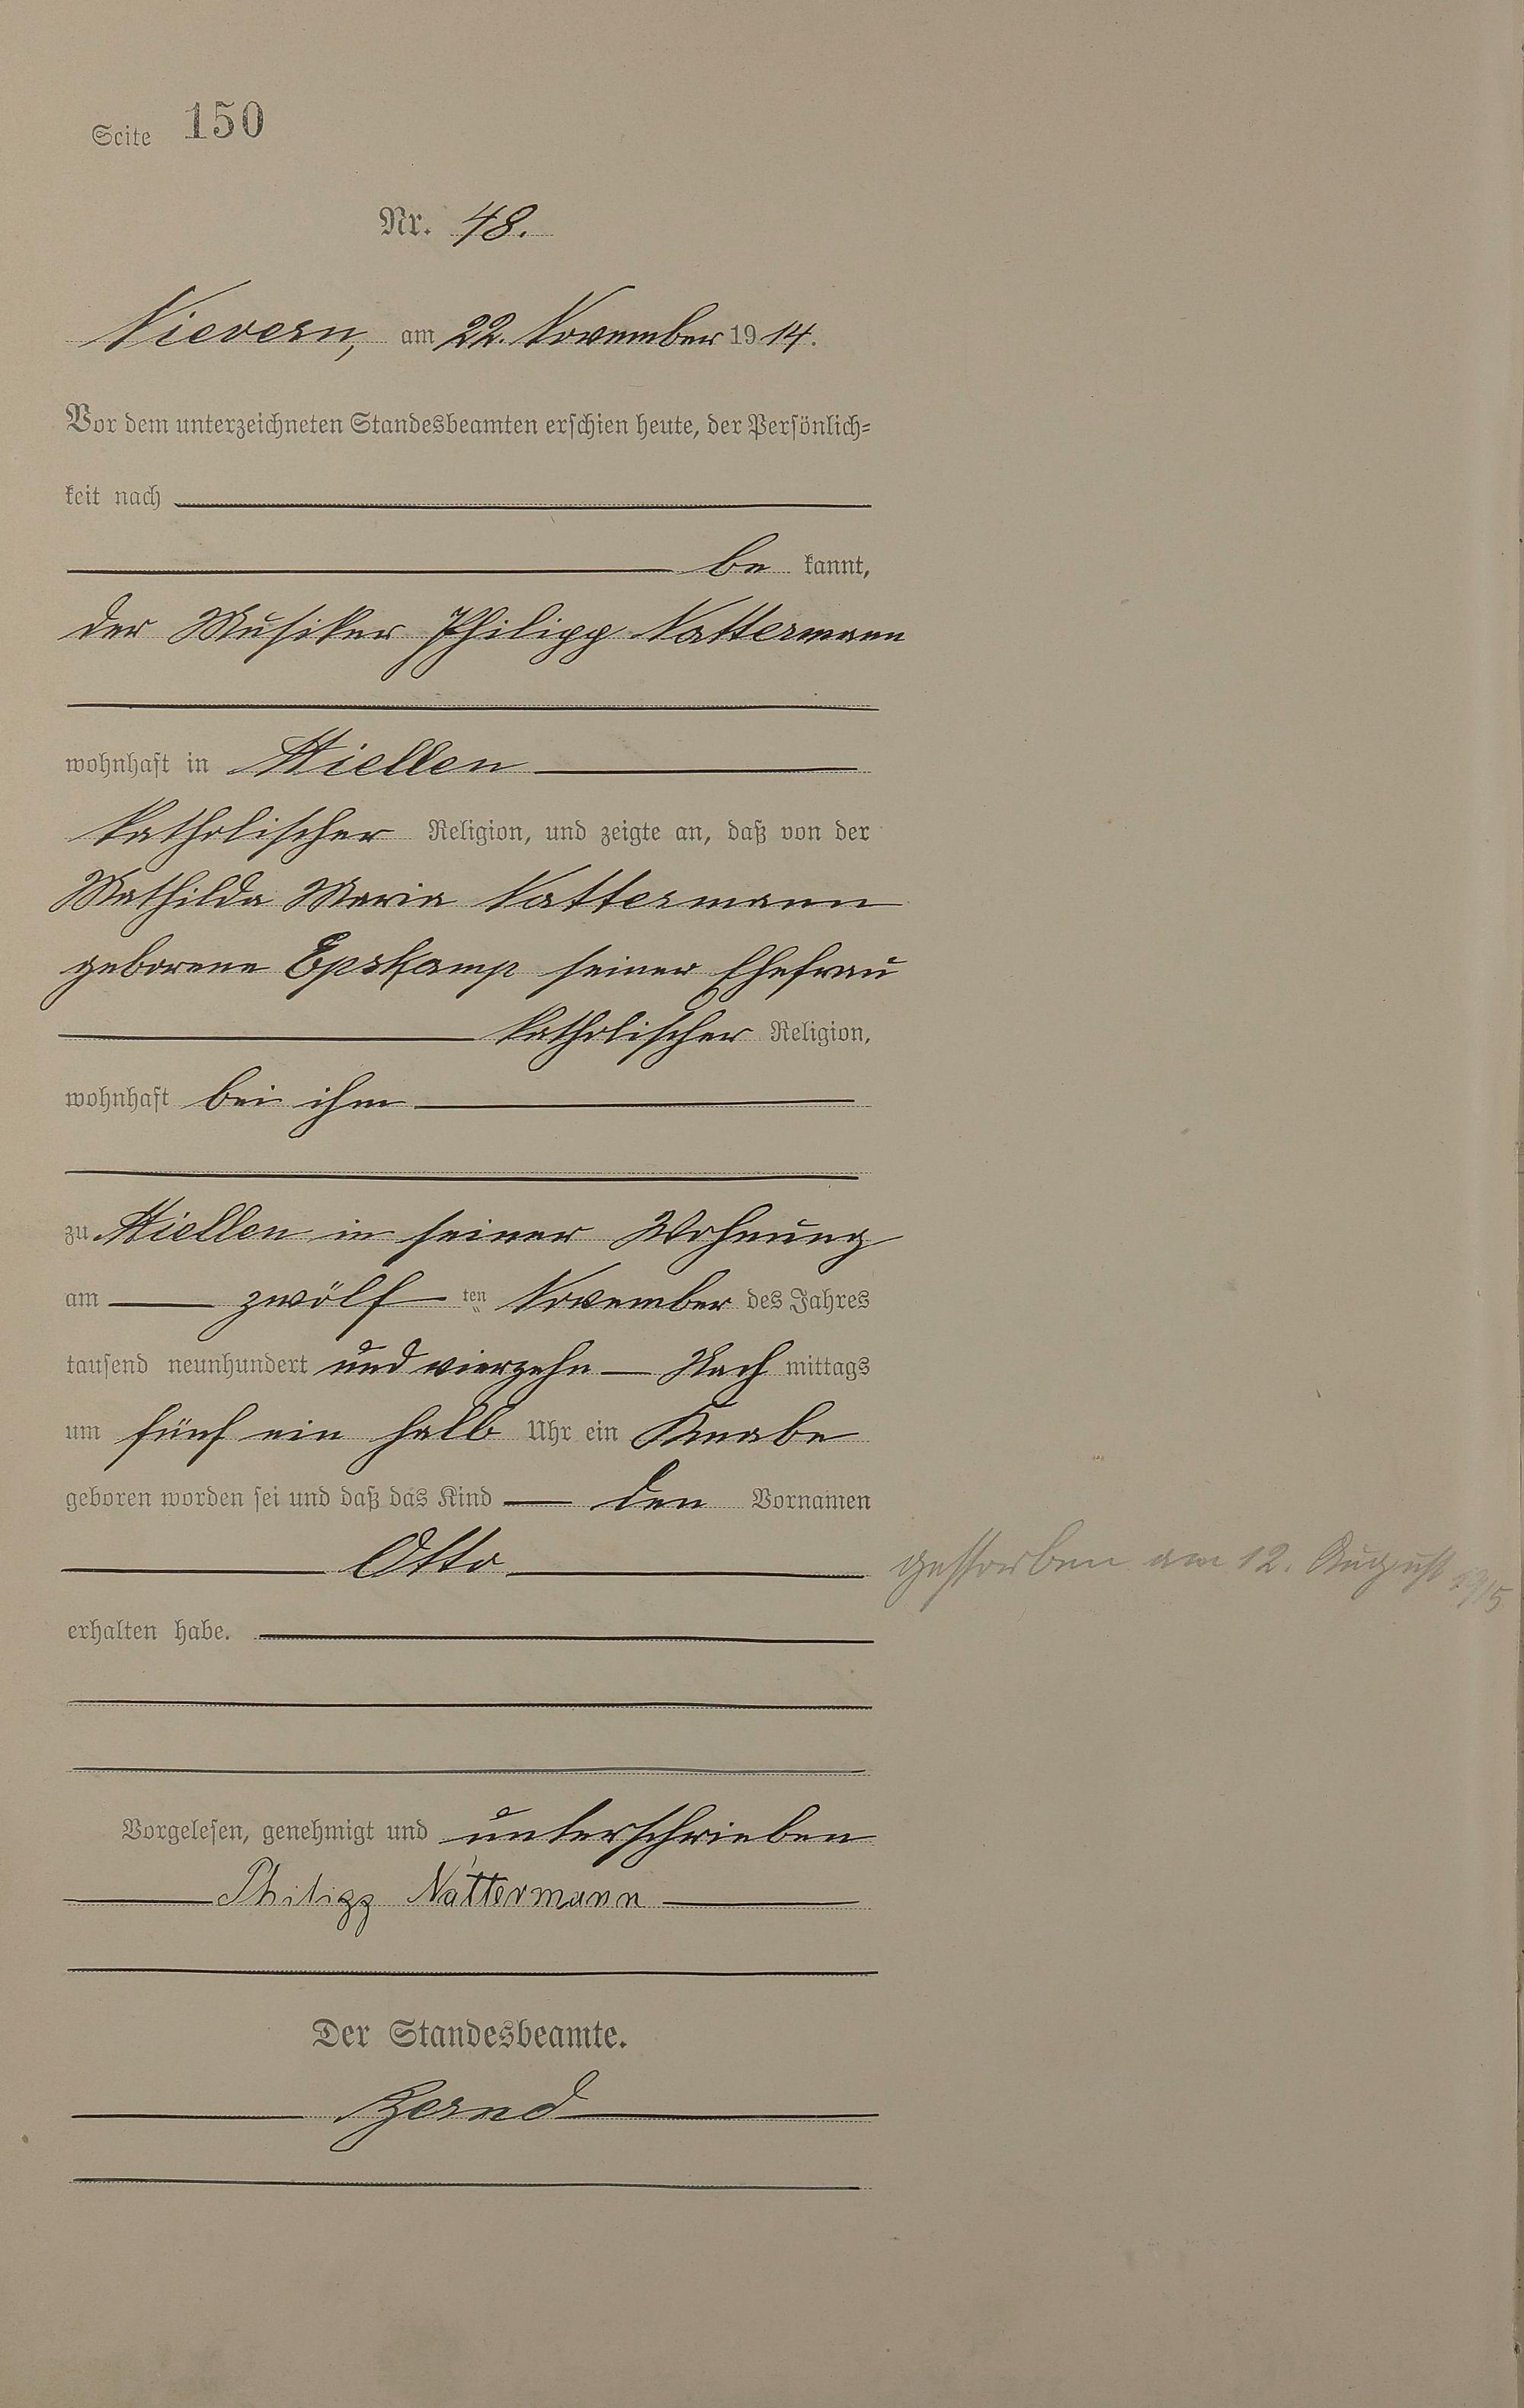 Seite 150
Nr. 48.
Nievern, am 22. November 1914.
Vor dem unterzeichneten Standesbeamten erschien heute, der Persönlich=
keit nach
be kannt,
der Musiker Philipp Nattermann
wohnhaft in Miellen
katholischer Religion, und zeigte an, daß von der
Mathilda Maria Nattermann
geborene Epskamp seiner Ehefrau
katholischer Religion,
wohnhaft bei ihm
zu Miellen in seiner Wohnung
am zwölf ten November des Jahres
tausend neunhundert und vierzehn Nach mittags
um fünf ein halb Uhr ein Knabe
geboren worden sei und daß das Kind den Vornamen
Otto
gestorben am 12. August 1915
erhalten habe.
Vorgelesen, genehmigt und unterschrieben
Philipp Nattermann
Der Standesbeamte.
Zernd